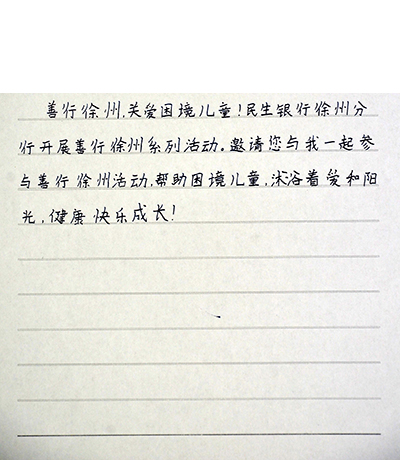 善行徐州,关爱困境儿童!民生银行徐州分
行开展善行徐州系列活动。邀请您与我一起参
与善行徐州活动,帮助困境儿童,沐浴着爱和阳
光,健康快乐成长!